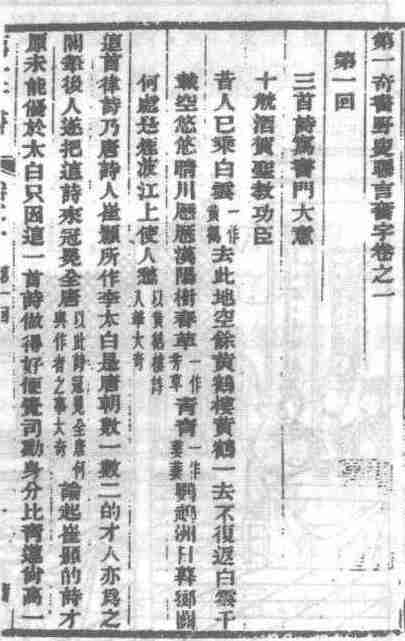 第一奇書野叟曝言奮字卷之一
第一回
三首詩為書門大意
十觥酒賀聖教功臣
昔人已乘白雲一作黃鶴去此地空餘黃鶴樓黃鶴一去不復返白雲千
載空悠悠晴川歷歷漢陽樹春草一作芳草青青一作萋萋鸚鵡洲日暮鄉關
何處是煙波江上使人愁以黃鶴樓詩入筆大奇
這首律詩乃唐詩人崔顥所作李太白是唐朝數一數二的才人亦為之
閣筆後人遂把這詩來冠冕全唐以此詩冠冕全唐何與作者之事大奇論起崔顥的詩才
原未能優於太白只因這一首詩做得好便覺司勳身分比青蓮尚高一